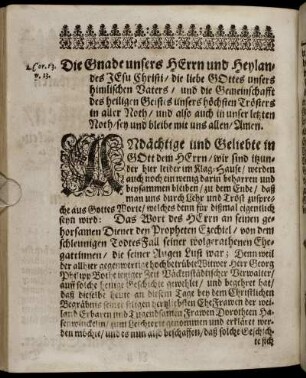 2. Cor. 13.
v. 13.
Die Gnade unsers HErrn und Heylan-
des JEsu Christi / die liebe GOttes unsers
himlischen Vaters / und die Gemeinschafft
des heiligen Geistes unsers höchsten Trösters
in aller Noth / und also auch in unser letzten
Noth / sey und bleibe mit uns allen / Amen.
ANdächtige und Geliebte in
GOtt dem HErrn / wir sind itzun-
der hier leider im Klag-Hause / werden
auch noch ein wenig darin beharren und
beysammen bleiben / zu dem Ende / daß
man uns durch Lehr und Trost zuspre-
che aus Gottes Wort / welches denn für dißmal eigentlich
seyn wird: Das Wort des HErrn an seinen ge-
horsamen Diener den Propheten Ezechiel / von dem
schleunigen Todes Fall seiner wolgerathenen Ehe-
gattinnen / die seiner Augen Lust war; Dennweil
der allhier gegenwertige hochbetrübte Witwer Herr Georg
Philipp Bothe itziger Zeit Vlckenstädtischer Verwalter /
auf solche heilige Geschichte gewehlet / und begehret hat /
daß dieselbe heute an diesem Tage bey dem Christlichen
Begräbniß seiner seligen hertzliebsten EheFrawen der wey-
land Erbaren und Tugendsamen Frawen Dorotheen Ha-
zum Leichtexte genommen und erkläret wer-
den möchte / und es nun also beschaffen / daß solche Geschich-
te sich